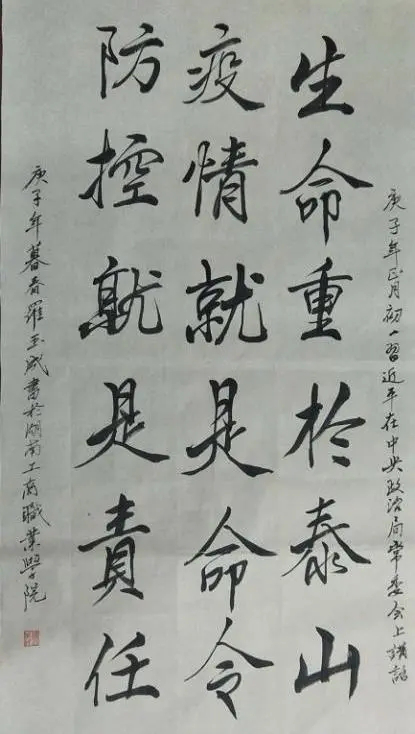 庚子年正月初一習近平在中央政治局常委会上講話
生命重於泰山
疫情就是命令
防控就是責任
庚子年暮春羅玉成書於湖南工商職業學院